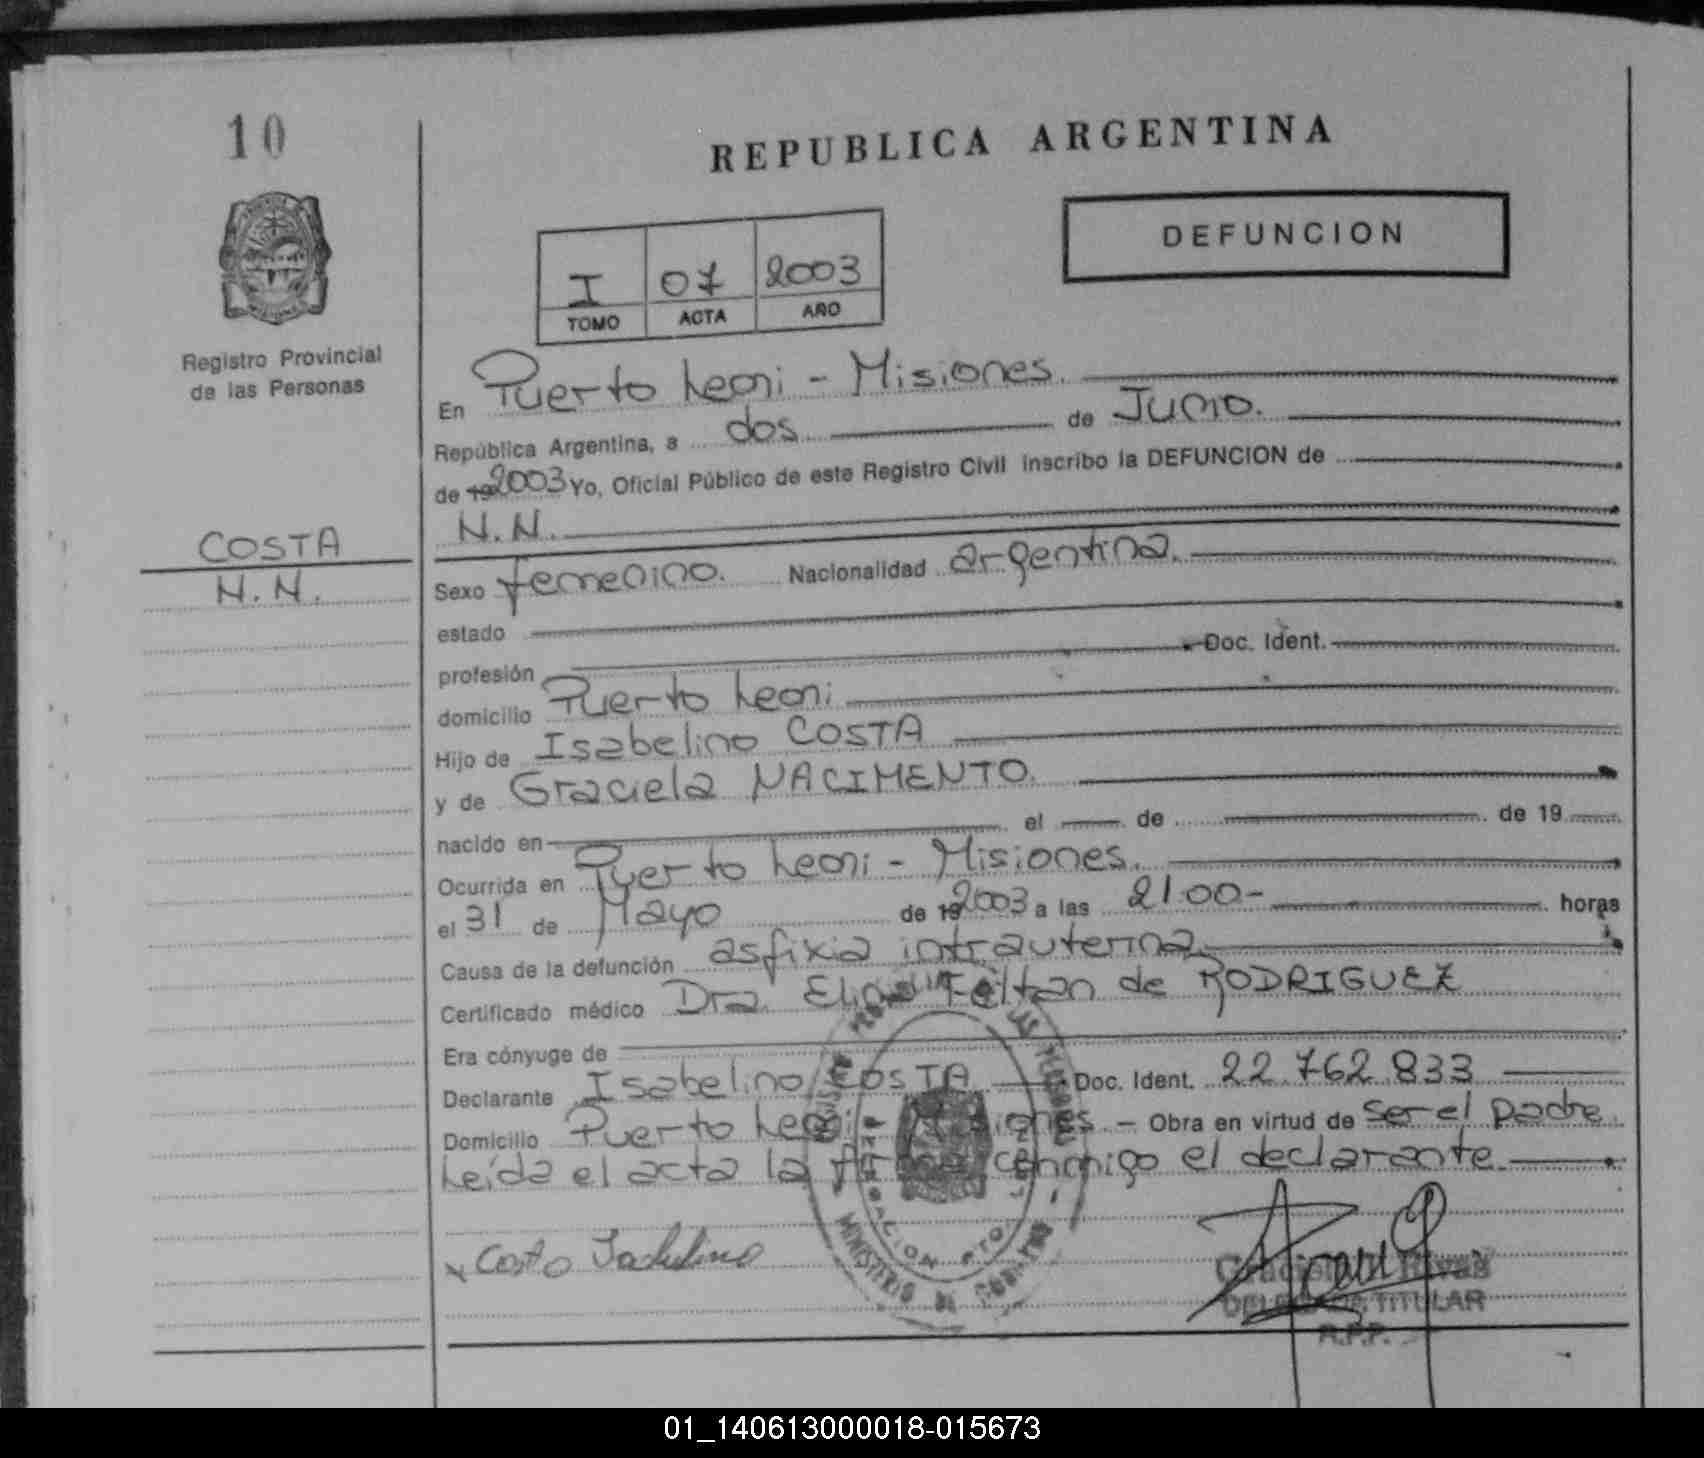 10
REPUBLICA ARGENTINA
DEFUNCION
I 07 2003
TOMO ACTA AÑO
Registro Provincial
de las Personas
En Puerto Leoni - Misiones.
República Argentina, a dos de Junio.
de 19 2003 Yo, Oficial Público de este Registro Civil inscribo la DEFUNCION de
N.N.
COSTA
N.N.
Sexo femenino. Nacionalidad argentina.
estado
profesión Doc. Ident.
domicilio Puerto Leoni
Hijo de Isabelino COSTA
y de Graciela NACIMENTO.
nacido en el de de 19
Ocurrida en Puerto Leoni - Misiones.
el 31 de Mayo de 19 2003 a las 21.00- horas
Causa de la defunción asfixia intrauterina.
Certificado médico Dra. de RODRIGUEZ
Era cónyuge de
Declarante Isabelino COSTA Doc. Ident. 22.762.833
Domicilio Puerto Leoni Misiones. - Obra en virtud de ser el padre.
Leída el acta la firma conmigo el declarante.
x Costa
MINISTERIO DE GOBIERNO
Rivas
TITULAR
R.P.P.
01_140613000018-015673